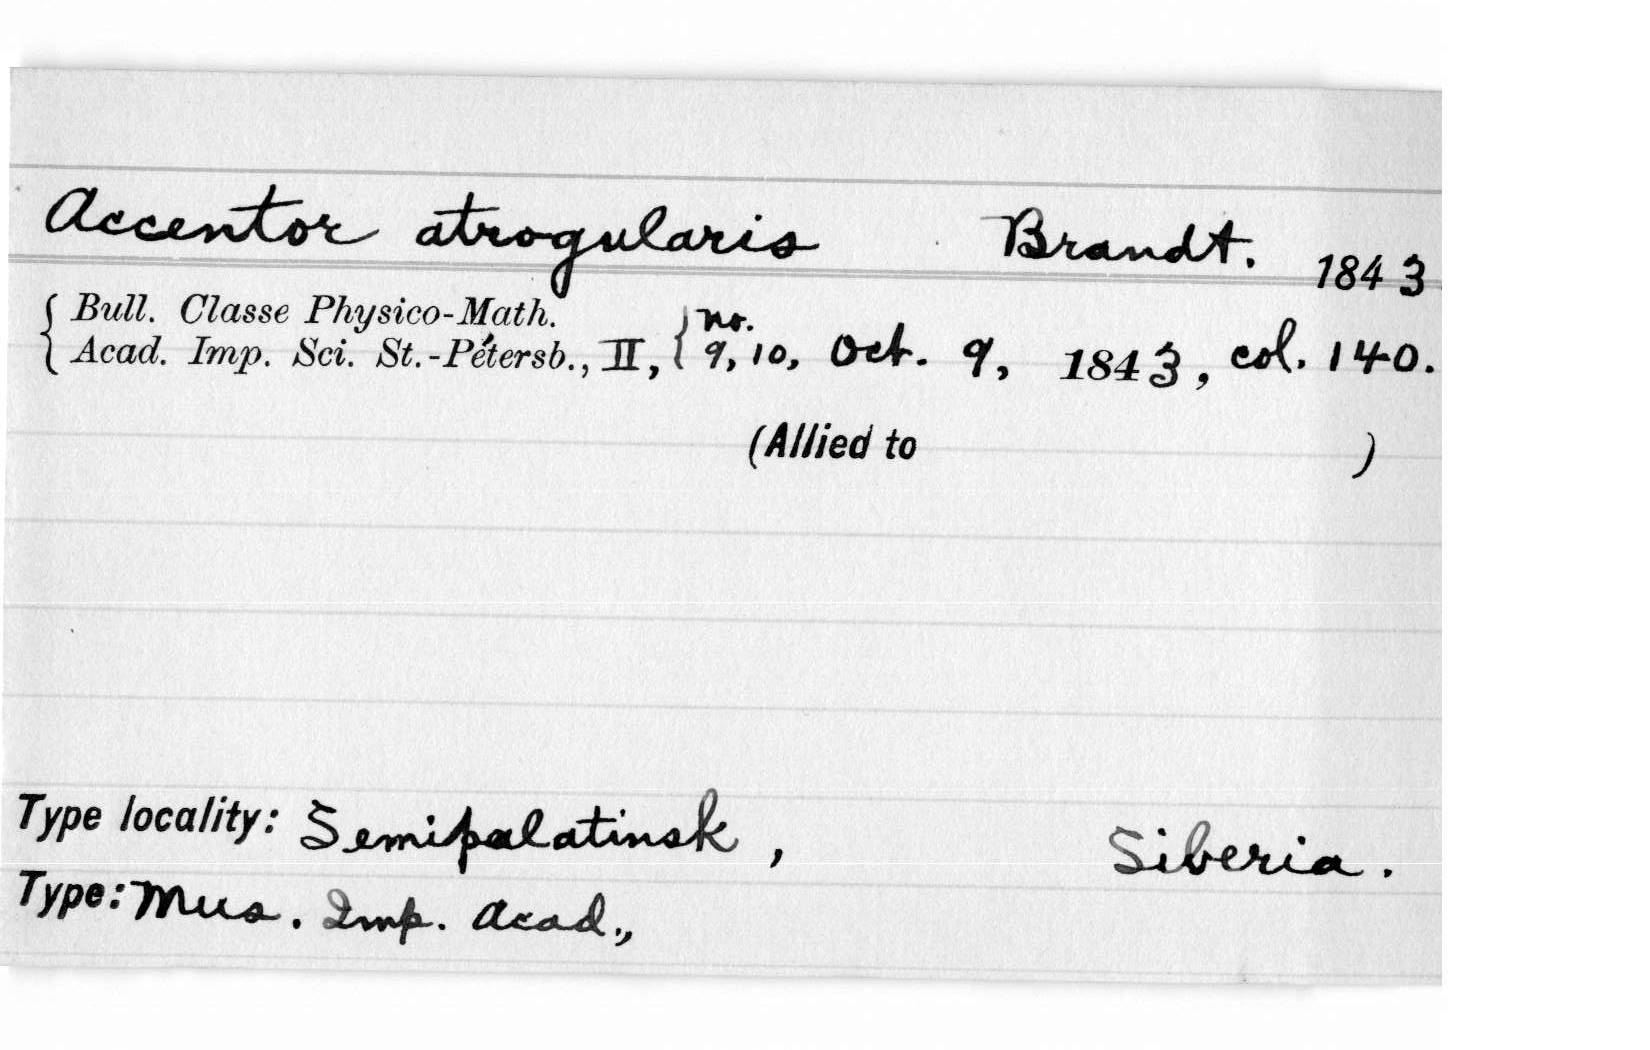 Accentor atrogularis Brandt. 1843
Bull. Classe Physico-Math.
Acad. Imp. Sci. St.-Pétersb., II, { no. 9, 10, Oct. 9, 1843, col. 140.
(Allied to )
Type locality: Semipalatinsk, Siberia.
Type: Mus. Imp. Acad.,